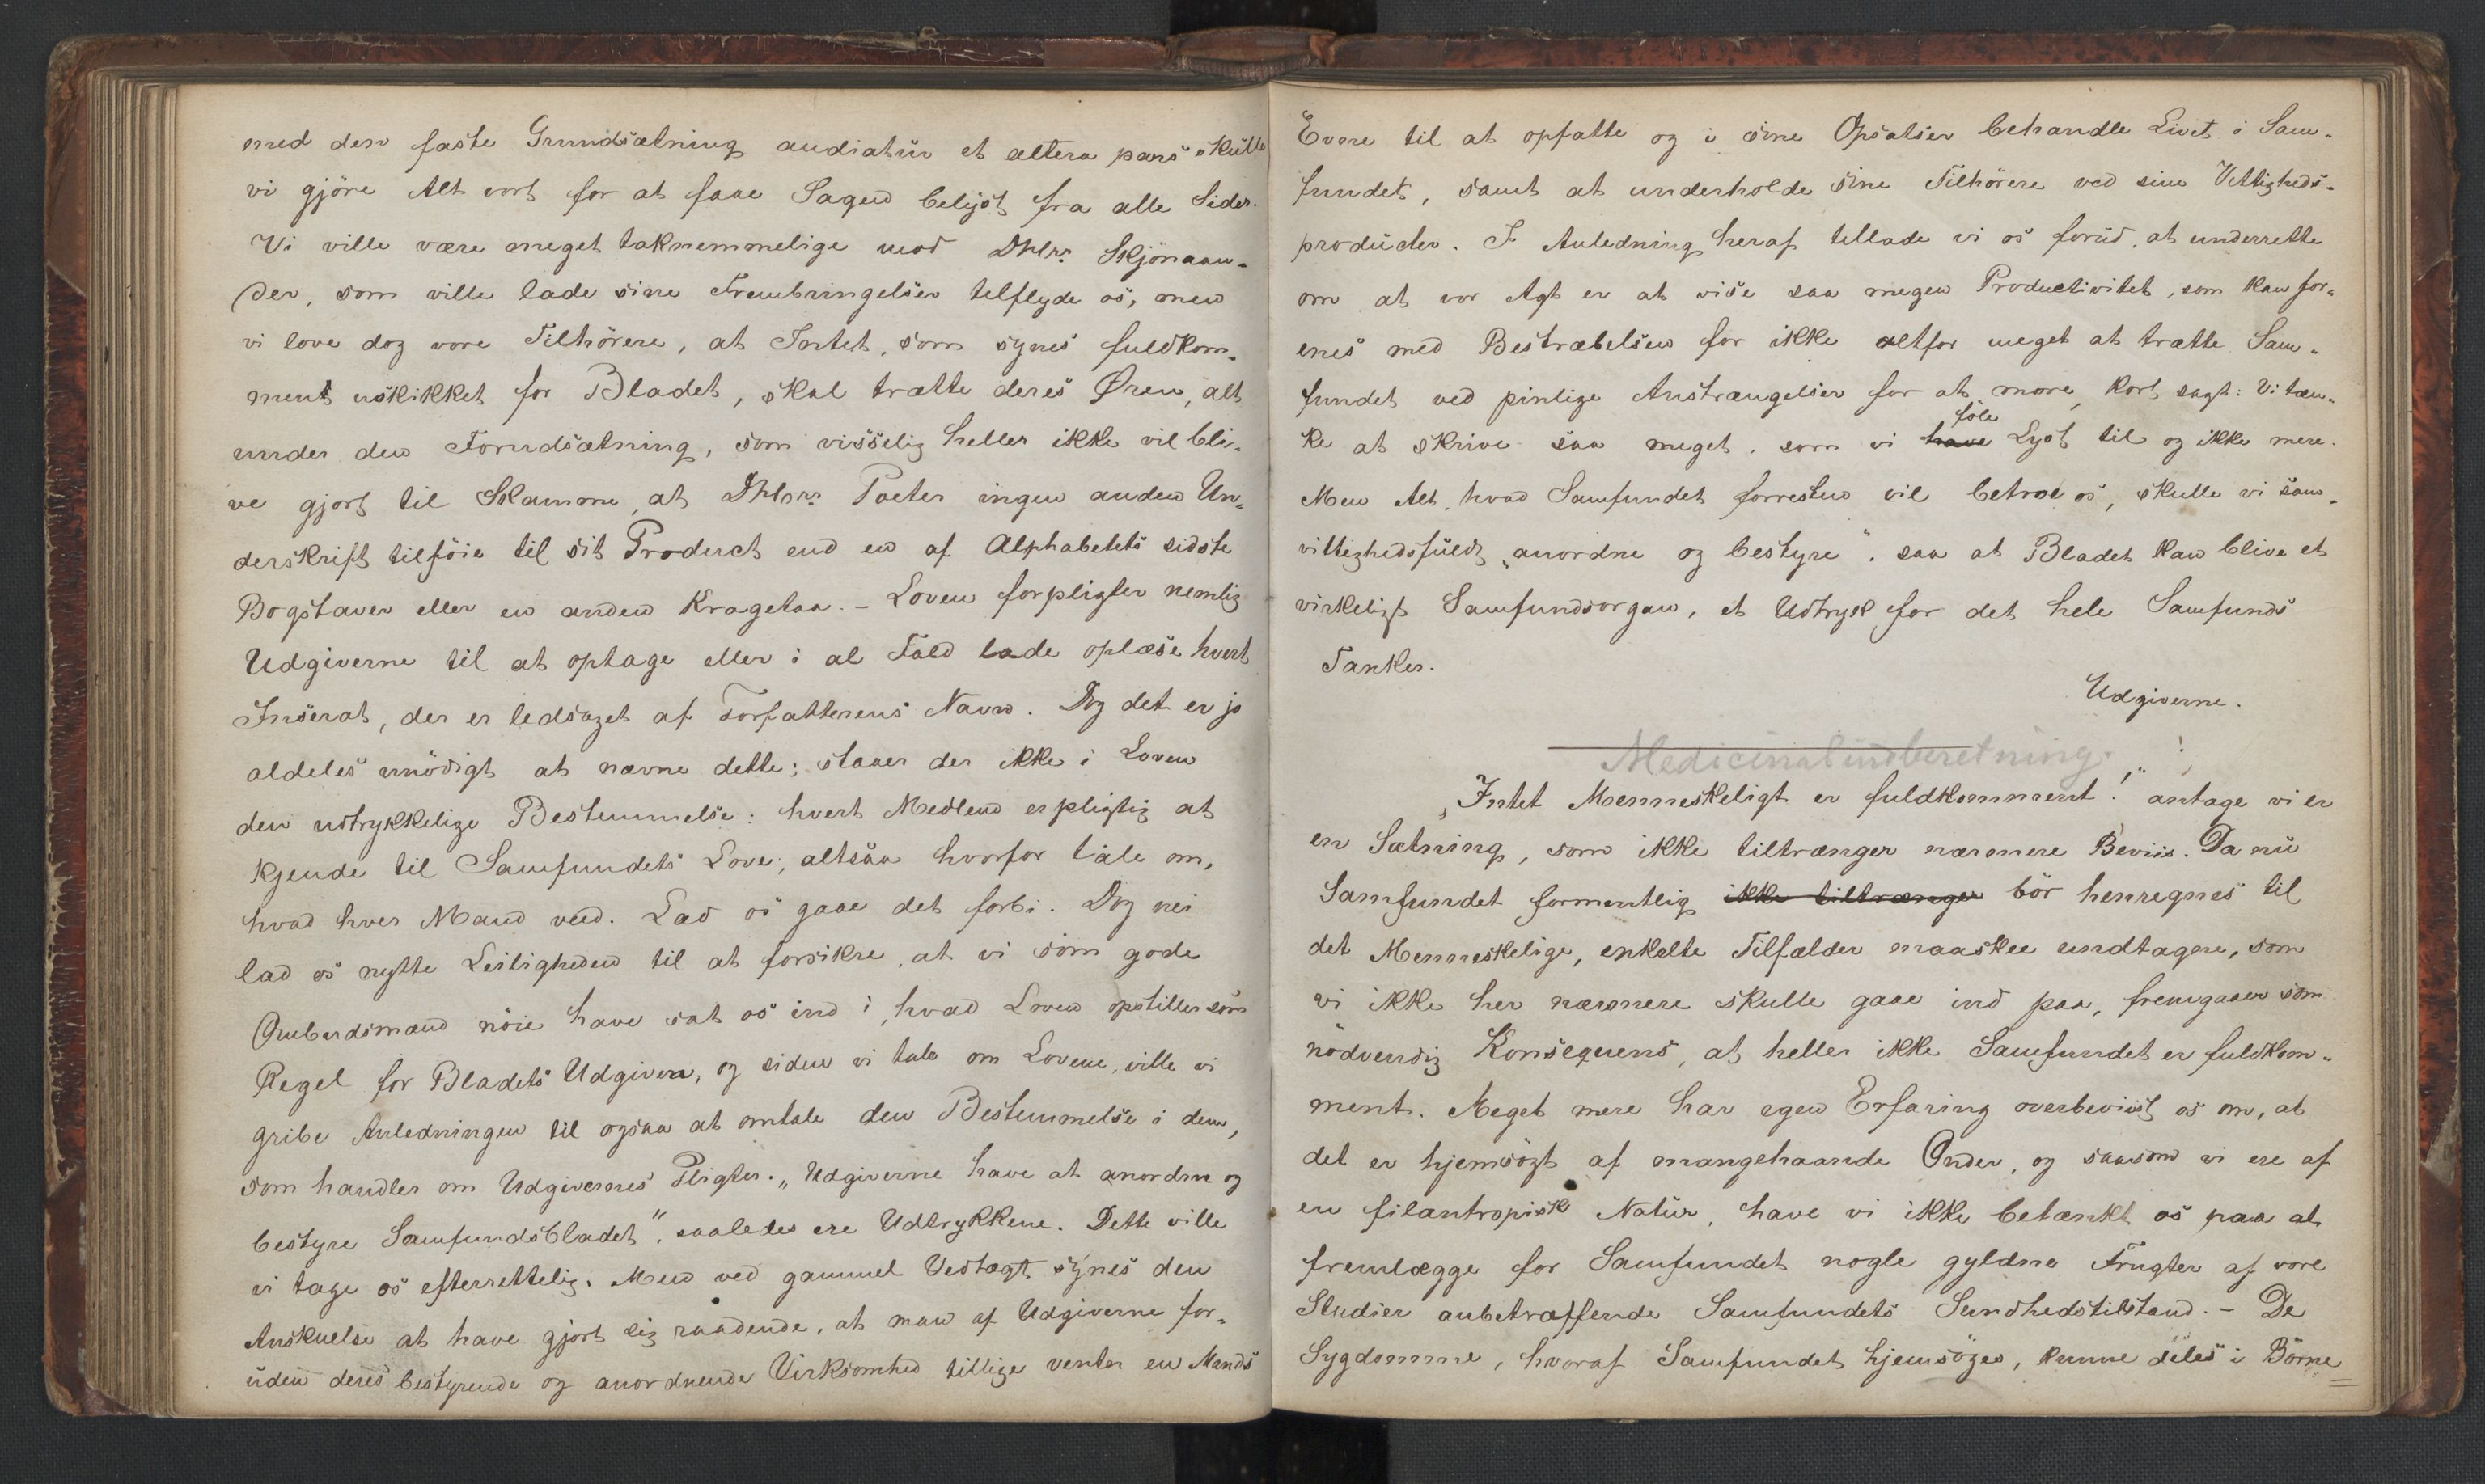 med den faste Grundsætning audiatur et altera pars skulle
vi gjöre Alt vort for at faae Sagen belyst fra alle Sider.
Vi ville være meget taknemmelige mod Dhlrr. Skjönaan-
der, som ville lade sine Frembringelser tilflyde os, men
vi love dog vore Tilhörere, at Intet, som synes fuldkom-
ment uskikket for Bladet, skal trætte deres Øren, alt
under den Forudsætning, som visselig heller ikke vil bli-
ve gjort til Skamme, at Dhlrr. Poeter ingen anden Un-
derskrift tilföie til sit Product end en af Alphabetets sidste
Bogstaver eller en anden Kragetaa. - Loven forpligter nemlig
Udgiverne til at optage eller i al Fald lade oplæse hvert
Inserat, der er ledsaget af Forfatterens Navn. Dog det er jo
aldeles unödigt at nævne dette; staaer der ikke i Loven
den udtrykkelige Bestemmelse: hvert Medlem er pligtig at
kjende til Samfundets Love; altsaa hvorfor tale om,
hvad hver Mand veed. Lad os gaae det forbi. Dog nei
lad os nytte Leiligheden til at forsikre, at vi som gode
Ombudsmænd nöie have sat os ind i, hvad Loven opstiller som
Regel for Bladets Udgivere, og siden vi tale om Lovene, ville vi
gribe Anledningen til ogsaa at omtale den Bestemmelse i dem,
som handler om Udgivernes Pligter. „Udgiverne have at anordne og
bestyre Samfundsbladet“, saaledes ere Udtrykkene. Dette ville
vi tage os efterrettelig. Men ved gammel Vedtægt synes den
Anskuelse at have gjort sig raadende, at man af Udgiverne for-
uden deres bestyrende og anordnende Virksomhed tillige venter en Mands
Evne til at opfatte og i sine Opsatser behandle Livet i Sam-
fundet, samt at underholde sine Tilhörere ved sine Vittigheds-
producter. I Anledning heraf tillade vi os forud at underrette
om at vor Agt er at vise saa megen Productivitet, som kan for-
enes med Bestræbelsen for ikke altfor meget at trætte Sam-
fundet ved pinlige Anstrængelser for at more, kort sagt: Vi tæn-
föle
ke at skrive saa meget, som vi have Lyst til og ikke mere.
Men Alt, hvad Samfundet forresten vil betroe os, skulle vi sam-
vittighedsfuldt „anordne og bestyre“, saa at Bladet kan blive et
virkeligt Samfundsorgan, et Udtryk for det hele Samfunds
Tanker.
Udgiverne.
Medicinalindberetning.
„Intet Menneskeligt er fuldkomment!“ antage vi er
en Sætning, som ikke tiltrænger nærmere Beviis. Da nu
Samfundet formentlig ikke tiltrænger bör henregnes til
det Menneskelige, enkelte Tilfælder maaskee undtagne, som
vi ikke her nærmere skulle gaae ind paa, fremgaaer som
nödvendig Konseqvens, at heller ikke Samfundet er fuldkom-
ment. Meget mere har egen Erfaring overbeviist os om, at
det er hjemsögt af mangehaande Onder, og saasom vi ere af
en filantropisk Natur, have vi ikke betænkt os paa at
fremlægge for Samfundet nogle gyldne Frugter af vore
Studier anbetræffende Samfundets Sundhedstilstand. - De
Sygdomme, hvoraf Samfundet hjemsöges, kunne deles i Börne=